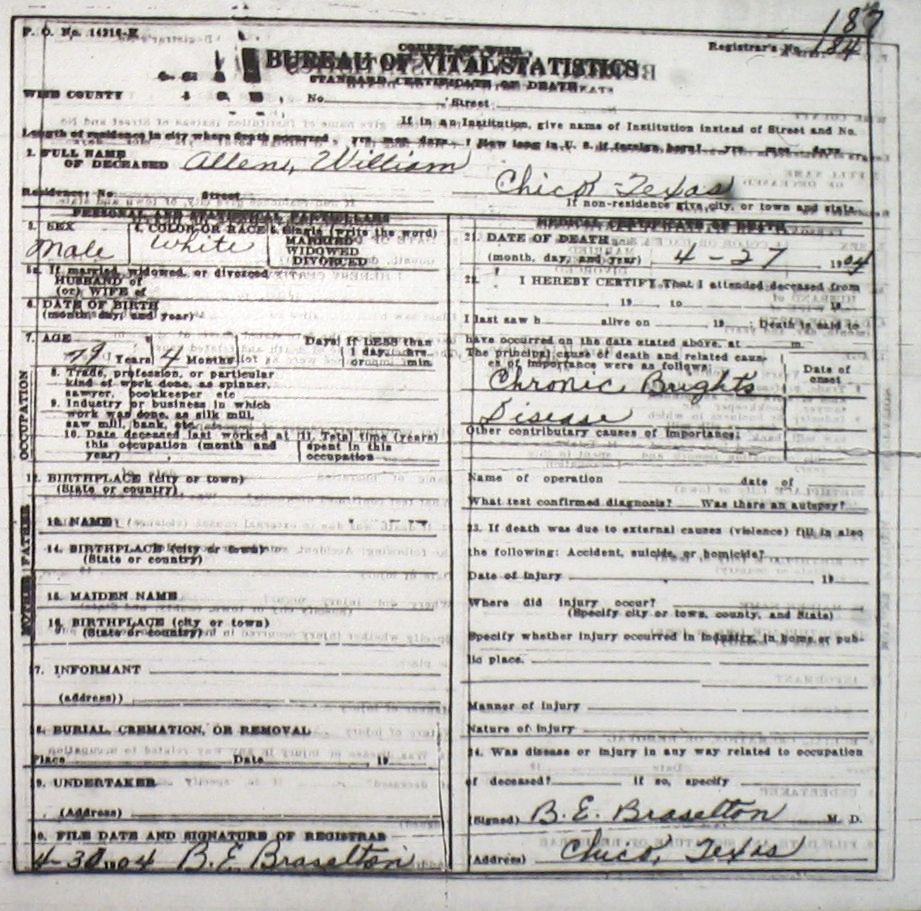 187
F. O. No. 14316-E
Registrar's No. 184
COUNTY OF WISE
BUREAU OF VITAL STATISTICS
STANDARD CERTIFICATE OF DEATH
WISE COUNTY No. Street
If in an Institution, give name of Institution instead of Street and No.
Length of residence in city where death occurred yrs mos days. How long in U. S. if foreign born? yrs mos days
2. FULL NAME
OF DECEASED Allen, William
Chico Texas
Residence: No Street
If non-residence give city, or town and state.
PERSONAL AND STATISTICAL PARTICULARS
3. SEX
Male
4. COLOR OR RACE
White
5. Single (write the word)
MARRIED
WIDOWED
DIVORCED
5a. If married, widowed, or divorced
HUSBAND of
(or) WIFE of
6. DATE OF BIRTH
(month, day, and year)
7. AGE
79 Years 4 Months Days If LESS than
1 day, hrs.
or min.
OCCUPATION
8. Trade, profession, or particular
kind of work done, as spinner,
sawyer, bookkeeper etc
9. Industry or business in which
work was done, as silk mill,
saw mill, bank, etc
10. Date deceased last worked at
this occupation (month and
year)
11. Total time (years)
spent in this
occupation
12. BIRTHPLACE (city or town)
(State or country)
FATHER
13. NAME
14. BIRTHPLACE (city or town)
(State or country)
MOTHER
15. MAIDEN NAME
16. BIRTHPLACE (city or town)
(State or country)
17. INFORMANT
(address))
18. BURIAL, CREMATION, OR REMOVAL
Place Date 19
19. UNDERTAKER
(Address)
20. FILE DATE AND SIGNATURE OF REGISTRAR
4-30 1904 B. E. Braselton
21. DATE OF DEATH
(month, day, and year) 4-27 1904
22. I HEREBY CERTIFY That I attended deceased from
19 to 19
I last saw h alive on 19 Death is said to
have occurred on the date stated above, at m
The principal cause of death and related caus-
es of importance were as follows
Date of
onset
Chronic Brights
Disease
Other contributary causes of importance:
Name of operation date of
What test confirmed diagnosis? Was there an autopsy?
23. If death was due to external causes (violence) fill in also
the following: Accident, suicide, or homicide?
Date of injury 19
Where did injury occur?
(Specify city or town, county, and State)
Specify whether injury occurred in industry, in home or pub-
lic place.
Manner of injury
Nature of injury
24. Was disease or injury in any way related to occupation
of deceased? If so, specify
(Signed) B. E. Braselton M. D.
(Address) Chico, Texas